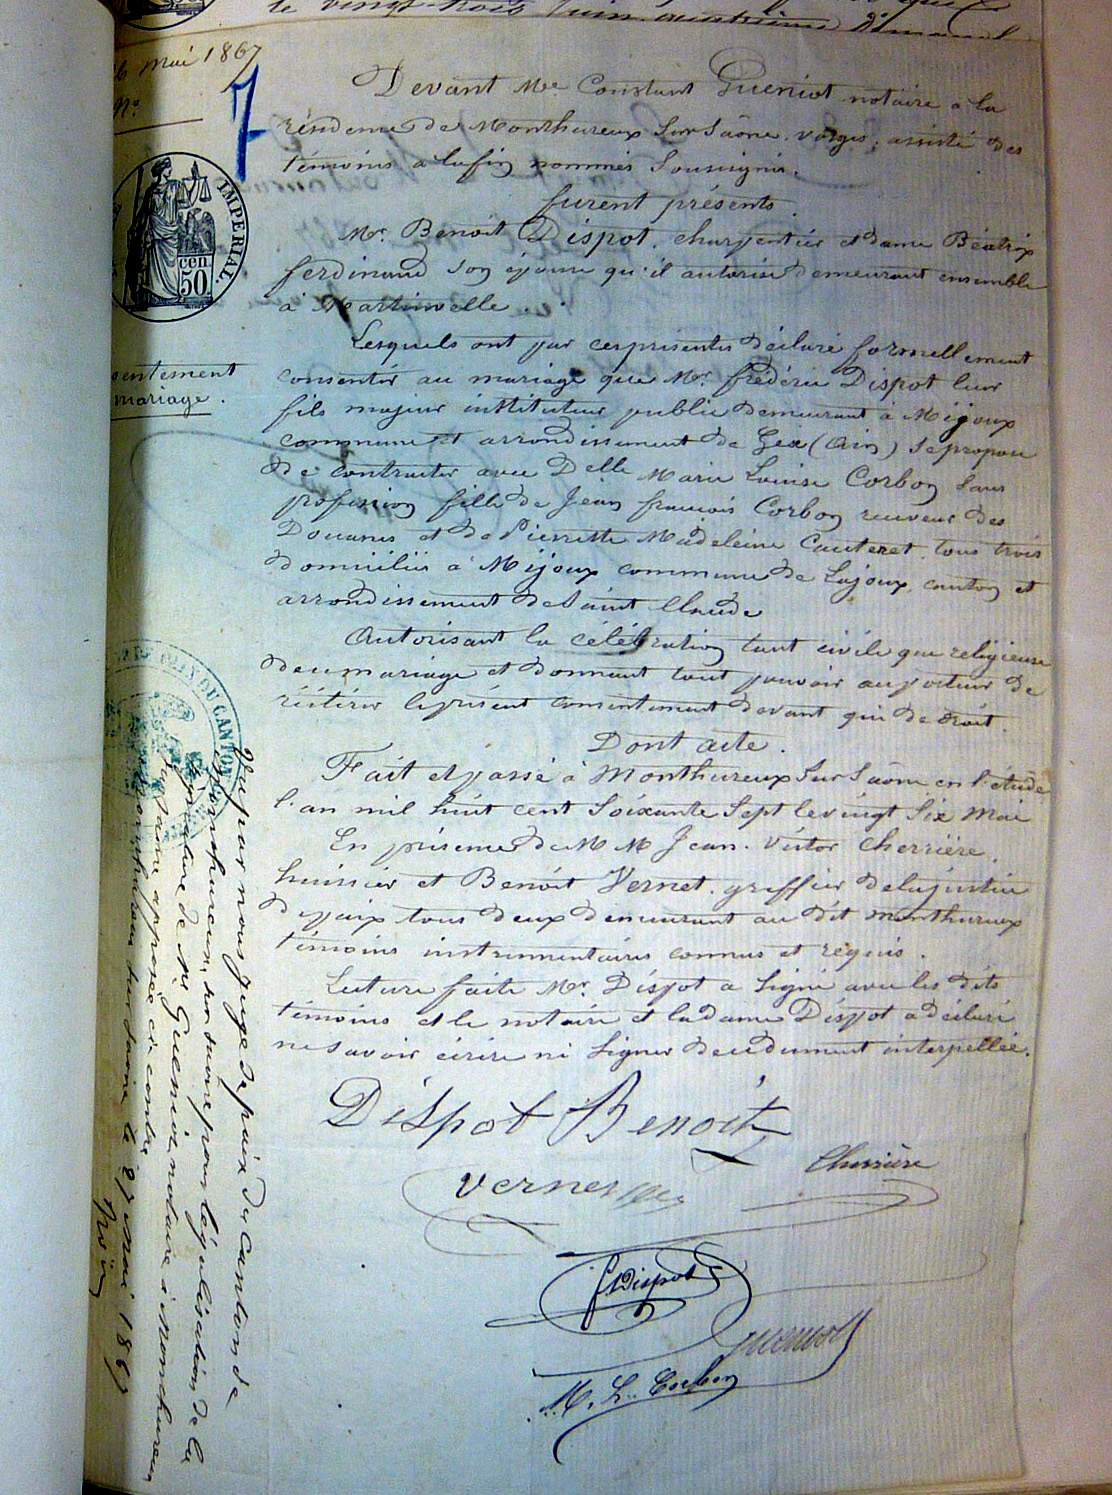 le vingt trois juin quatrième Dimanche
26 Mai 1867
No.
7
IMPERIAL.
cen
50
sentement
mariage.
Devant Me Constant Gueniot notaire à la
résidence de Monthureux Sur Saône. Vosges, assisté des
témoins a lafin nommés Soussignés.
furent présents
Mr. Benoit Dispot, charpentier et dame Béatrix
ferdinand son épouse qu'il autorise demeurant ensemble
à Martinvelle.
Lesquels ont par cesprésentes déclaré formellement
consentir au mariage que Mr. frédéric Dispot leur
fils majeur instituteur public demeurant à Mijoux
commune et arrondissement de Gex (Ain) se propose
de contracter avec Delle Marie Louise Corbon sans
profession fille de Jean françois Corbon receveur des
Douanes et de Pierrette Madeleine Cauteret, tous trois
domiciliés à Mijoux commune de Lajoux, canton et
arrondissement de Saint Claude
Autorisant la célébration tant civile que religieuse
decemariage et donnant tout pouvoir auporteur de
réitérer leprésent consentement devant qui de droit.
Dont acte.
Fait etpassé à Monthureux Sur Saône en l'étude
l'an mil huit cent Soixante Sept levingt Six Mai
En présence de M M Jean. Victor Cherrière,
huissier et Benoit Vernet, greffier delajustice
depaix tous deux demeurant au dit monthureux
témoins instrumentaires connus et requis.
Lecture faite Mr. Dispot a Signé avec les dits
témoins et le notaire et ladame Dispot a déclaré
ne savoir écrire ni Signer decedument interpellée.
Dispot Benoit
Vernet
Cherrière
Dispot
Gueniot
M. L. Corbon
DU CANTON
Vu par nous juge de paix du canton de
Monthureux sur Saône pour légalisation de la
signature de Mr Gueniot notaire à Monthureux
apposée ci contre
Monthureux sur Saone le 27 mai 1867